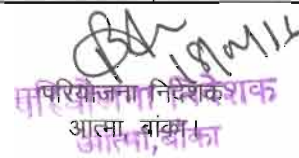 परियोजना निदेशक
आत्मा, बांका।
परियोजना निदेशक
आत्मा, बांका